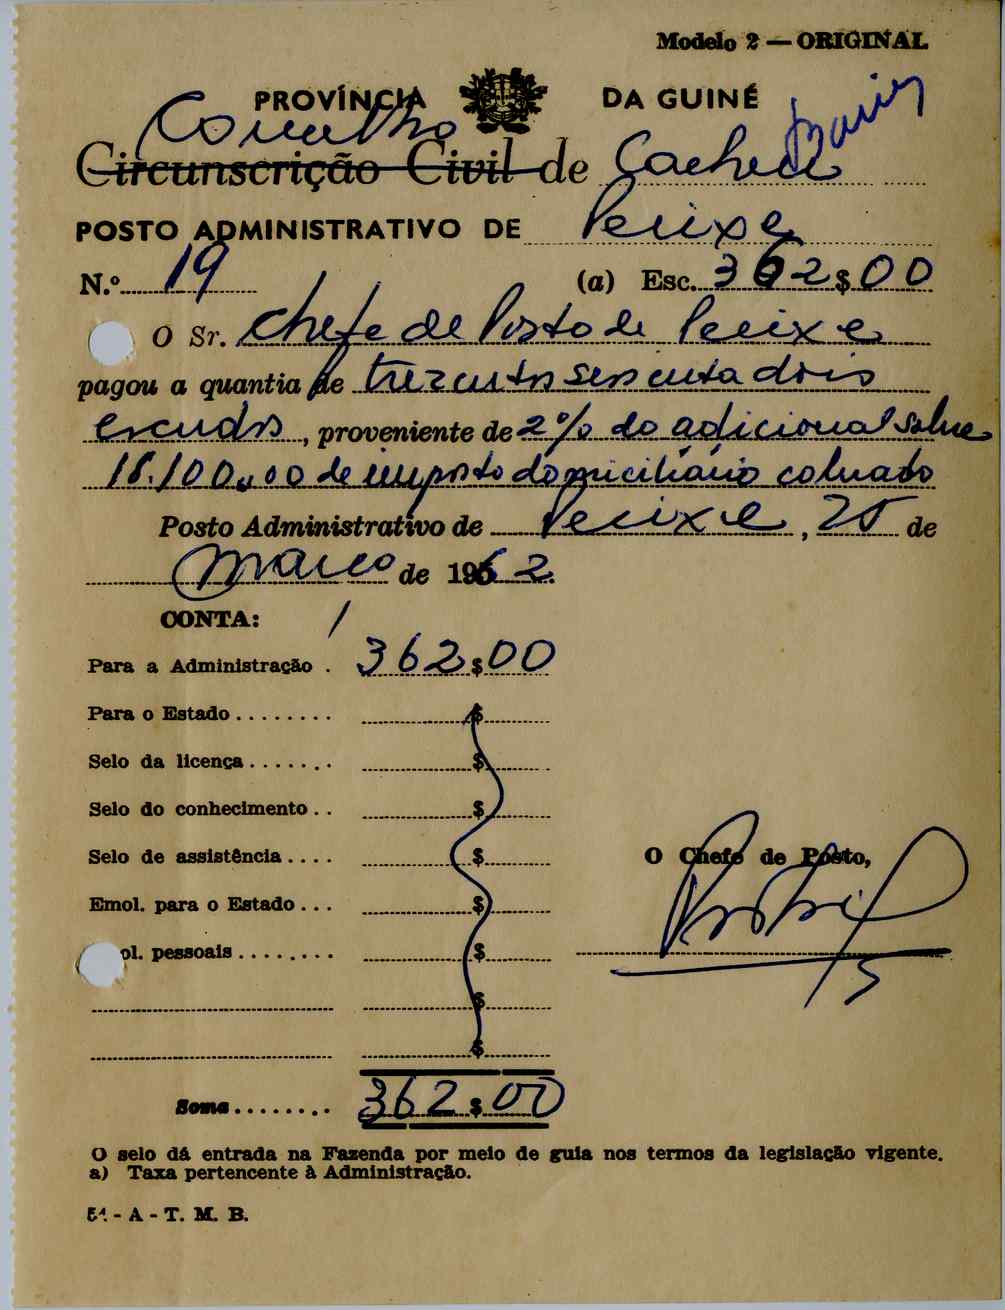 Modelo 2 — ORIGINAL
PROVÍNCIA DA GUINÉ
Concelho
Circunscrição Civil de Cacheu
POSTO ADMINISTRATIVO DE Pecixe
N.º 19 (a) Esc. 362$00
O Sr. Chefe de Posto de Pecixe
pagou a quantia de trezentos sessenta dois
escudos, proveniente de 2% do adicional sobre
18.100,00 de imposto domiciliário cobrado
Posto Administrativo de Pecixe, 25 de
Março de 1962.
CONTA:
Para a Administração . 362$00
Para o Estado ........ $
Selo da licença ....... $
Selo do conhecimento .. $
Selo de assistência .... $
O Chefe de Posto,
Emol. para o Estado ... $
ol. pessoais ........ $
$
$
Soma ........ 362$00
O selo dá entrada na Fazenda por meio de guia nos termos da legislação vigente.
a) Taxa pertencente à Administração.
51 - A - T. M. B.